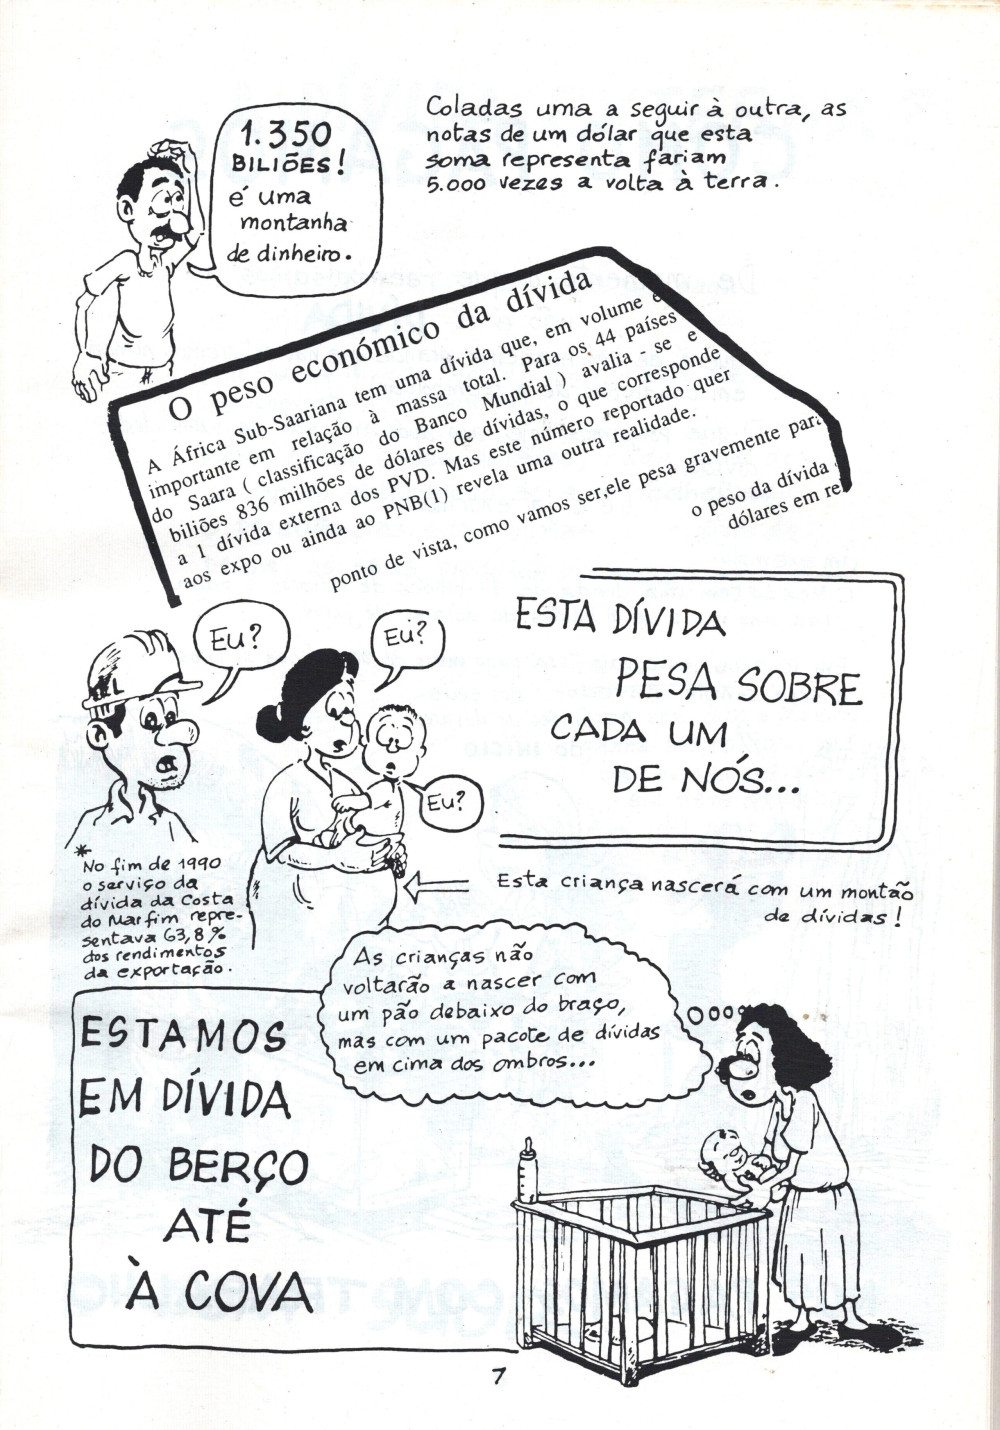 1.350
BILIÕES!
é uma
montanha
de dinheiro.
Coladas uma a seguir à outra, as
notas de um dólar que esta
soma representa fariam
5.000 vezes a volta à terra.
O peso económico da dívida
A África Sub-Saariana tem uma dívida que, em volume é
importante em relação à massa total. Para os 44 países
do Saara ( classificação do Banco Mundial ) avalia - se e
biliões 836 milhões de dólares de dívidas, o que corresponde
a 1 dívida externa dos PVD. Mas este número reportado quer
aos expo ou ainda ao PNB(1) revela uma outra realidade.
ponto de vista, como vamos ser,ele pesa gravemente para
o peso da dívida
dólares em re
Eu?
Eu?
Eu?
ESTA DÍVIDA
PESA SOBRE
CADA UM
DE NÓS...
*
No fim de 1990
o serviço da
dívida da Costa
do Marfim repre-
sentava 63,8%
dos rendimentos
da exportação.
Esta criança nascerá com um montão
de dívidas!
As crianças não
voltarão a nascer com
um pão debaixo do braço,
mas com um pacote de dívidas
em cima dos ombros...
ESTAMOS
EM DÍVIDA
DO BERÇO
ATÉ
À COVA
7